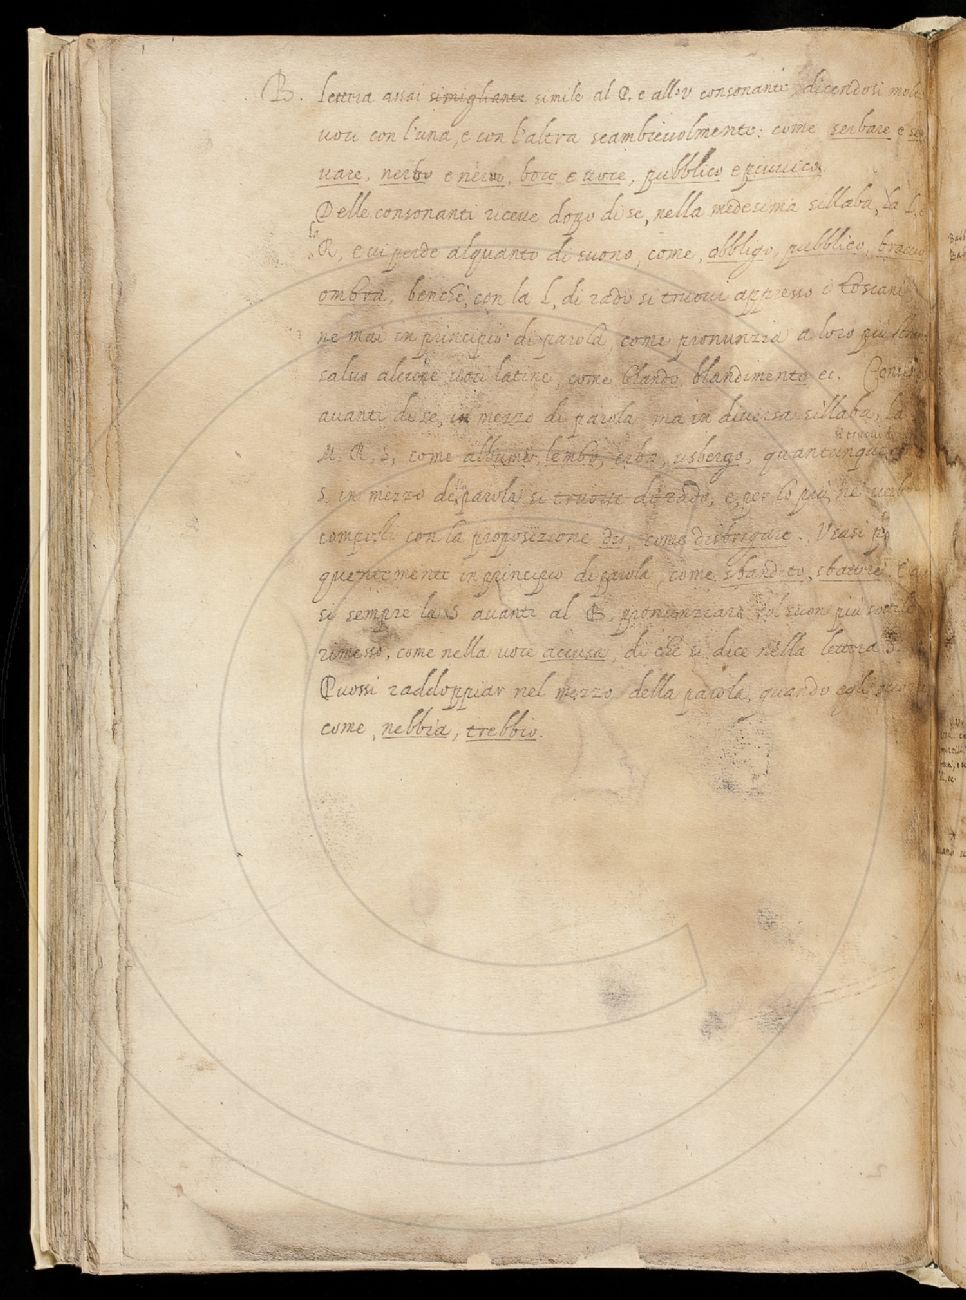 B. lettera assai simigliante simile al P, e all'v consonante dicendosi molte
voci con l'una, e con l'altra scambievolmente: come serbare e ser
vare, nerbo e nervo, boce e voce, pubblico e puvvico.
Delle consonanti riceve dopo di se, nella medesima sillaba, la L, e
la
R, e vi perde alquanto di suono, come, obbligo, pubblico, braccio
ombra, benchè, con la L, di rado si truovi appresso i Toscani
ne mai in principio di parola come pronunzia a loro più
salvo alcune voci latine, come blando, blandimento ec.
avanti di se, in mezzo di parola ma in diversa sillaba, la
si truovi
M. R. S, come lembo, erba, usbergo, quantunque
S. in mezzo di parola si truove di rado, e per lo più ne' verbi
composti con la preposizione dis, come disbrigare. Usasi
quentemente in principio di parola, come sbandito, sbattere
si sempre la S avanti al B, pronunziare col suon più sottile
rimesso, come nella voce accusa, di che si dice nella lettera S.
Puossi raddoppiar nel mezzo della parola, quando egli
come, nebbia, trebbio.